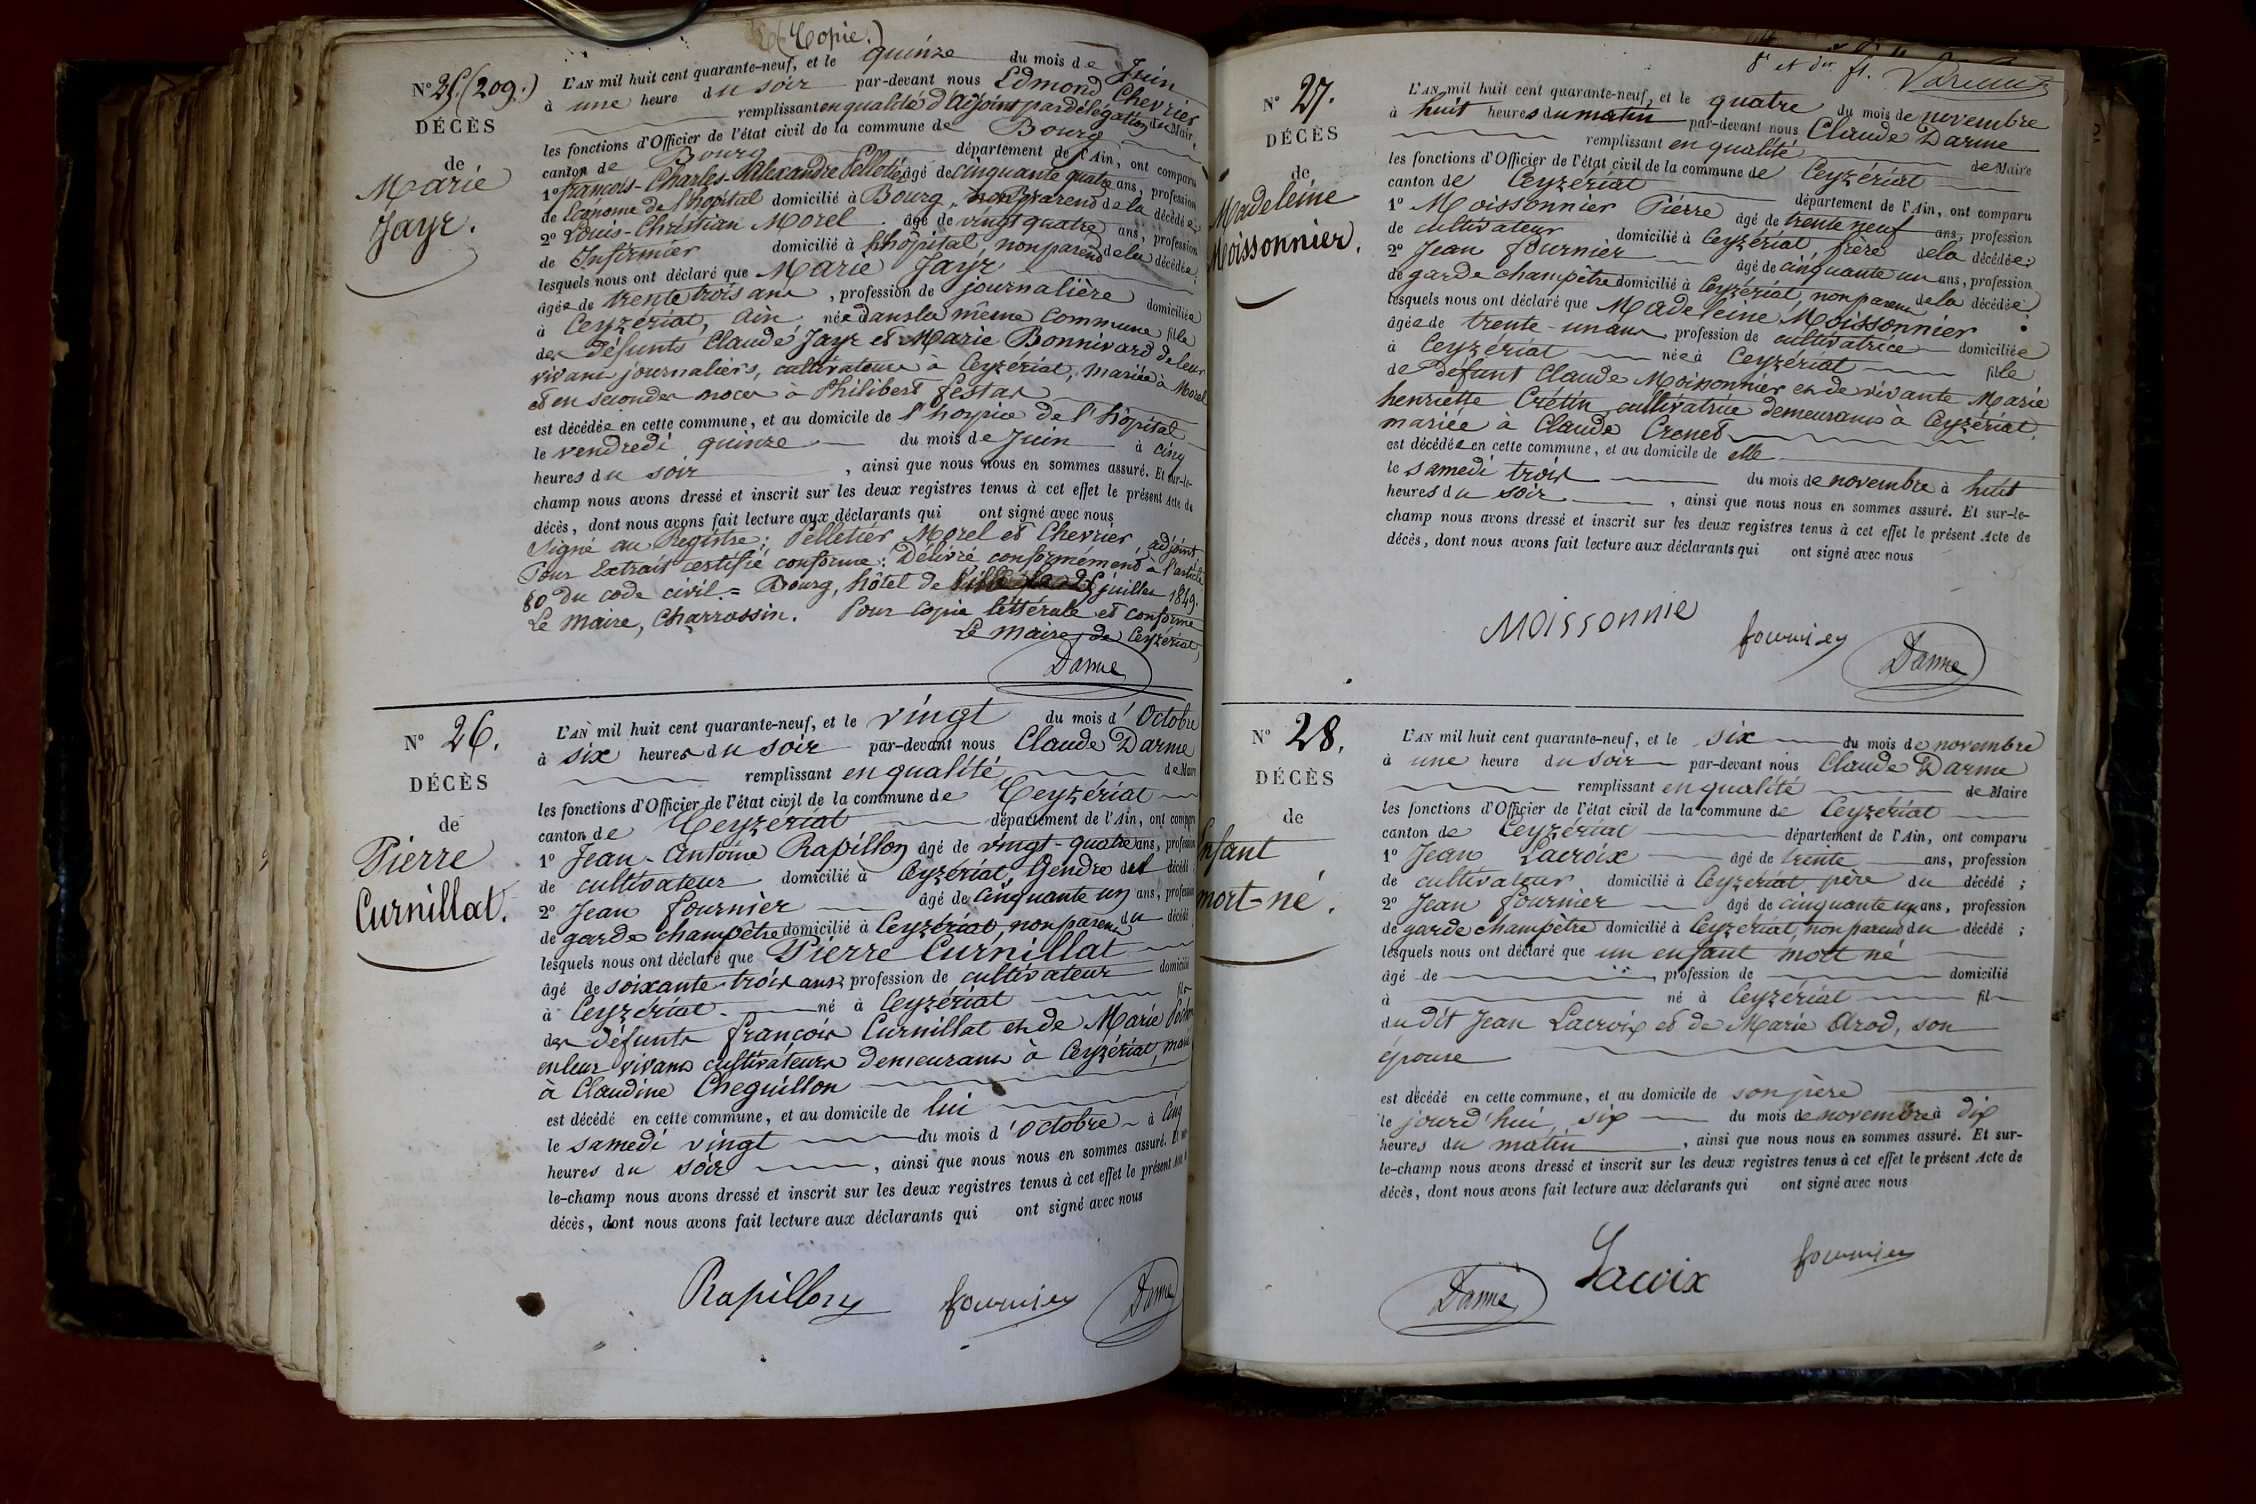 (Copie.)
N° 25. (209.)
DÉCÈS
de
Marie
Jayr.
L'AN mil huit cent quarante-neuf, et le quinze du mois de Juin
à une heure du soir par-devant nous Edmond Chevrier
remplissant en qualité d'Adjoint par délégation du Maire
les fonctions d'Officier de l'état civil de la commune de Bourg
canton de Bourg département de l'Ain, ont comparu
1° françois-Charles-Alexandre Pelletier âgé de cinquante quatre ans, profession
de Econome de l'hopital domicilié à Bourg, non parend de la décédée;
2° Louis-Christian Morel âgé de vingt quatre ans, profession
de Infirmier domicilié à l'hôpital, non parend de la décédée;
lesquels nous ont déclaré que Marie Jayr
âgée de trente trois ans, profession de journalière domiciliée
à Ceyzériat, Ain, née dans la même Commune fille
des défunts Claude Jayr et Marie Bonnivard de leur
vivant journaliers, cultivateurs à Ceyzériat, mariée à Morel
et en secondes noces à Philibert Festas
est décédée en cette commune, et au domicile de l'hospice de l'hôpital
le vendredi quinze du mois de Juin à cinq
heures du soir, ainsi que nous nous en sommes assuré. Et sur-le-
champ nous avons dressé et inscrit sur les deux registres tenus à cet effet le présent Acte de
décès, dont nous avons fait lecture aux déclarants qui ont signé avec nous
Signé au Registre: Pelletier Morel et Chevrier, adjoint
Pour Extrait certifié conforme: Délivré conformément à l'article
80 du code civil = Bourg, hôtel de juillet 1849.
Le Maire, Charrassin. Pour copie littérale et conforme
Le Maire de Ceyzériat,
Darme
N° 26.
DÉCÈS
de
Pierre
Curnillat.
L'AN mil huit cent quarante-neuf, et le vingt du mois d'Octobre
à six heures du soir par-devant nous Claude Darme
remplissant en qualité de Maire
les fonctions d'Officier de l'état civil de la commune de Ceyzériat
canton de Ceyzériat département de l'Ain, ont comparu
1° Jean-Antoine Rapillon âgé de vingt-quatre ans, profession
de cultivateur domicilié à Ceyzériat, Gendre du décédé;
2° Jean fournier âgé de cinquante un ans, profession
de garde champêtre domicilié à Ceyzériat, non parend du décédé
lesquels nous ont déclaré que Pierre Curnillat
âgé de soixante-trois ans, profession de cultivateur domicilié
à Ceyzériat né à Ceyzériat fils
des défunts françois Curnillat et de Marie
en leur vivans cultivateurs demeurans à Ceyzériat, marié
à Claudine Cheguillon
est décédé en cette commune, et au domicile de lui
le samedi vingt du mois d'octobre à cinq
heures du soir, ainsi que nous nous en sommes assuré. Et sur-
le-champ nous avons dressé et inscrit sur les deux registres tenus à cet effet le présent Acte de
décès, dont nous avons fait lecture aux déclarants qui ont signé avec nous
Rapillon fournier Darme
8e et der ft.
N° 27.
DÉCÈS
de
Madeleine
Moissonnier.
L'AN mil huit cent quarante-neuf, et le quatre du mois de novembre
à huit heures du matin par-devant nous Claude Darme
remplissant en qualité de Maire
les fonctions d'Officier de l'état civil de la commune de Ceyzériat
canton de Ceyzériat département de l'Ain, ont comparu
1° Moissonnier Pierre âgé de trente neuf ans, profession
de cultivateur domicilié à Ceyzériat frère de la décédée;
2° Jean fournier âgé de cinquante un ans, profession
de garde champêtre domicilié à Ceyzériat, non parens de la décédée;
lesquels nous ont déclaré que Madeleine Moissonnier
âgée de trente-un ans profession de cultivatrice domiciliée
à Ceyzériat née à Ceyzériat fille
de défunt Claude Moissonnier et de vivante Marie
henriette Crétin cultivatrice demeurans à Ceyzériat,
mariée à Claude Crenet
est décédée en cette commune, et au domicile de elle
le samedi trois du mois de novembre à huit
heures du soir, ainsi que nous nous en sommes assuré. Et sur-le-
champ nous avons dressé et inscrit sur les deux registres tenus à cet effet le présent Acte de
décès, dont nous avons fait lecture aux déclarants qui ont signé avec nous
Moissonnie
fournier Darme
N° 28.
DÉCÈS
de
Enfant
mort-né.
L'AN mil huit cent quarante-neuf, et le six du mois de novembre
à une heure du soir par-devant nous Claude Darme
remplissant en qualité de Maire
les fonctions d'Officier de l'état civil de la commune de Ceyzériat
canton de Ceyzériat département de l'Ain, ont comparu
1° Jean Lacroix âgé de trente ans, profession
de cultivateur domicilié à Ceyzériat père du décédé;
2° Jean fournier âgé de cinquante un ans, profession
de garde champêtre domicilié à Ceyzériat, non parend du décédé;
lesquels nous ont déclaré que un enfant mort né
âgé de, profession de domicilié
à né à Ceyzériat fil
du dit Jean Lacroix et de Marie Arod, son
épouse
est décédé en cette commune, et au domicile de son père
le jourd'hui six du mois de novembre à dix
heures du matin, ainsi que nous nous en sommes assuré. Et sur-
le-champ nous avons dressé et inscrit sur les deux registres tenus à cet effet le présent Acte de
décès, dont nous avons fait lecture aux déclarants qui ont signé avec nous
Darme Lacroix fournier